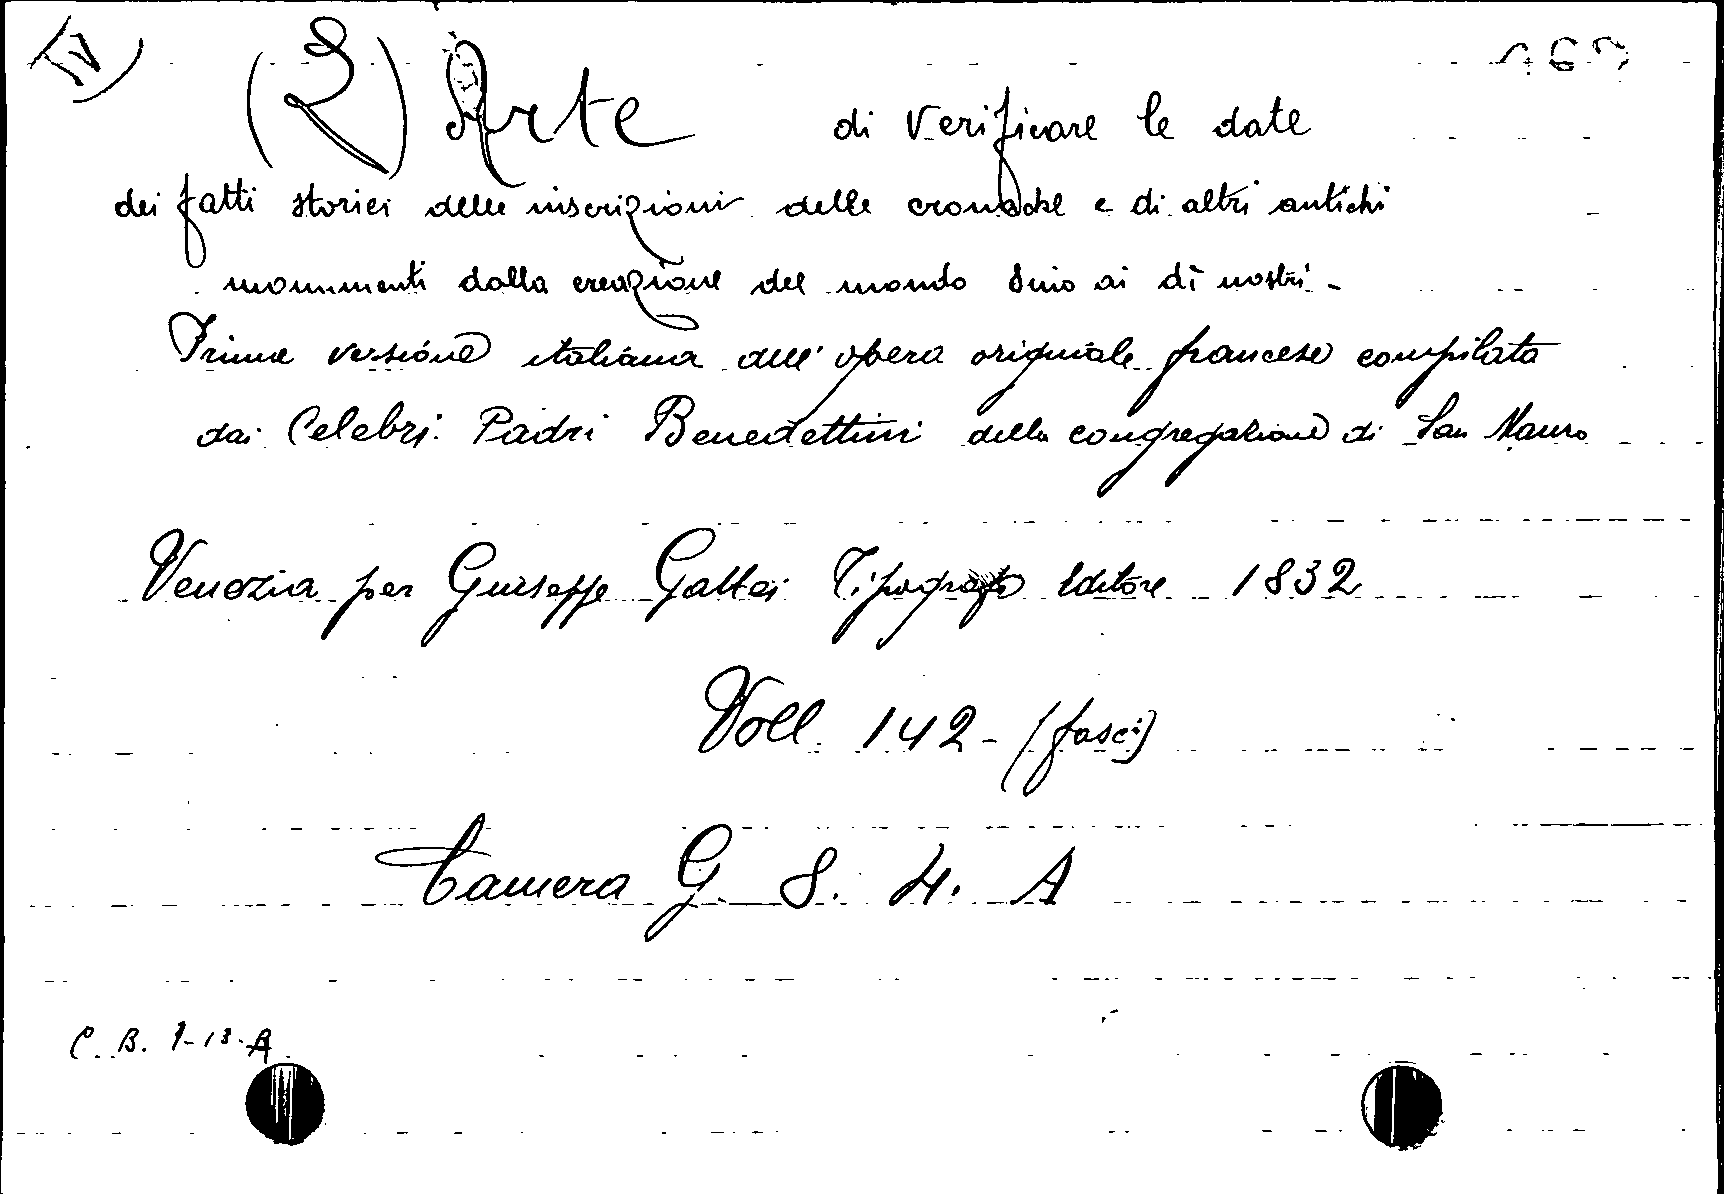 IV)
(L') Arte di verificare le date
dei fatti storici delle inscrizioni delle cronache e di altri antichi
monumenti dalla creazione del mondo sino ai dì nostri -
Prima versione italiana dell'opera originale francese compilata
dai Celebri Padri Benedettini della congregazione di San Mauro
Venezia per Giuseppe Gattei Tipografo Editore 1832
Voll. 142 - (fasci)
Camera G. 8. 4. A
C. B. 9-13-A